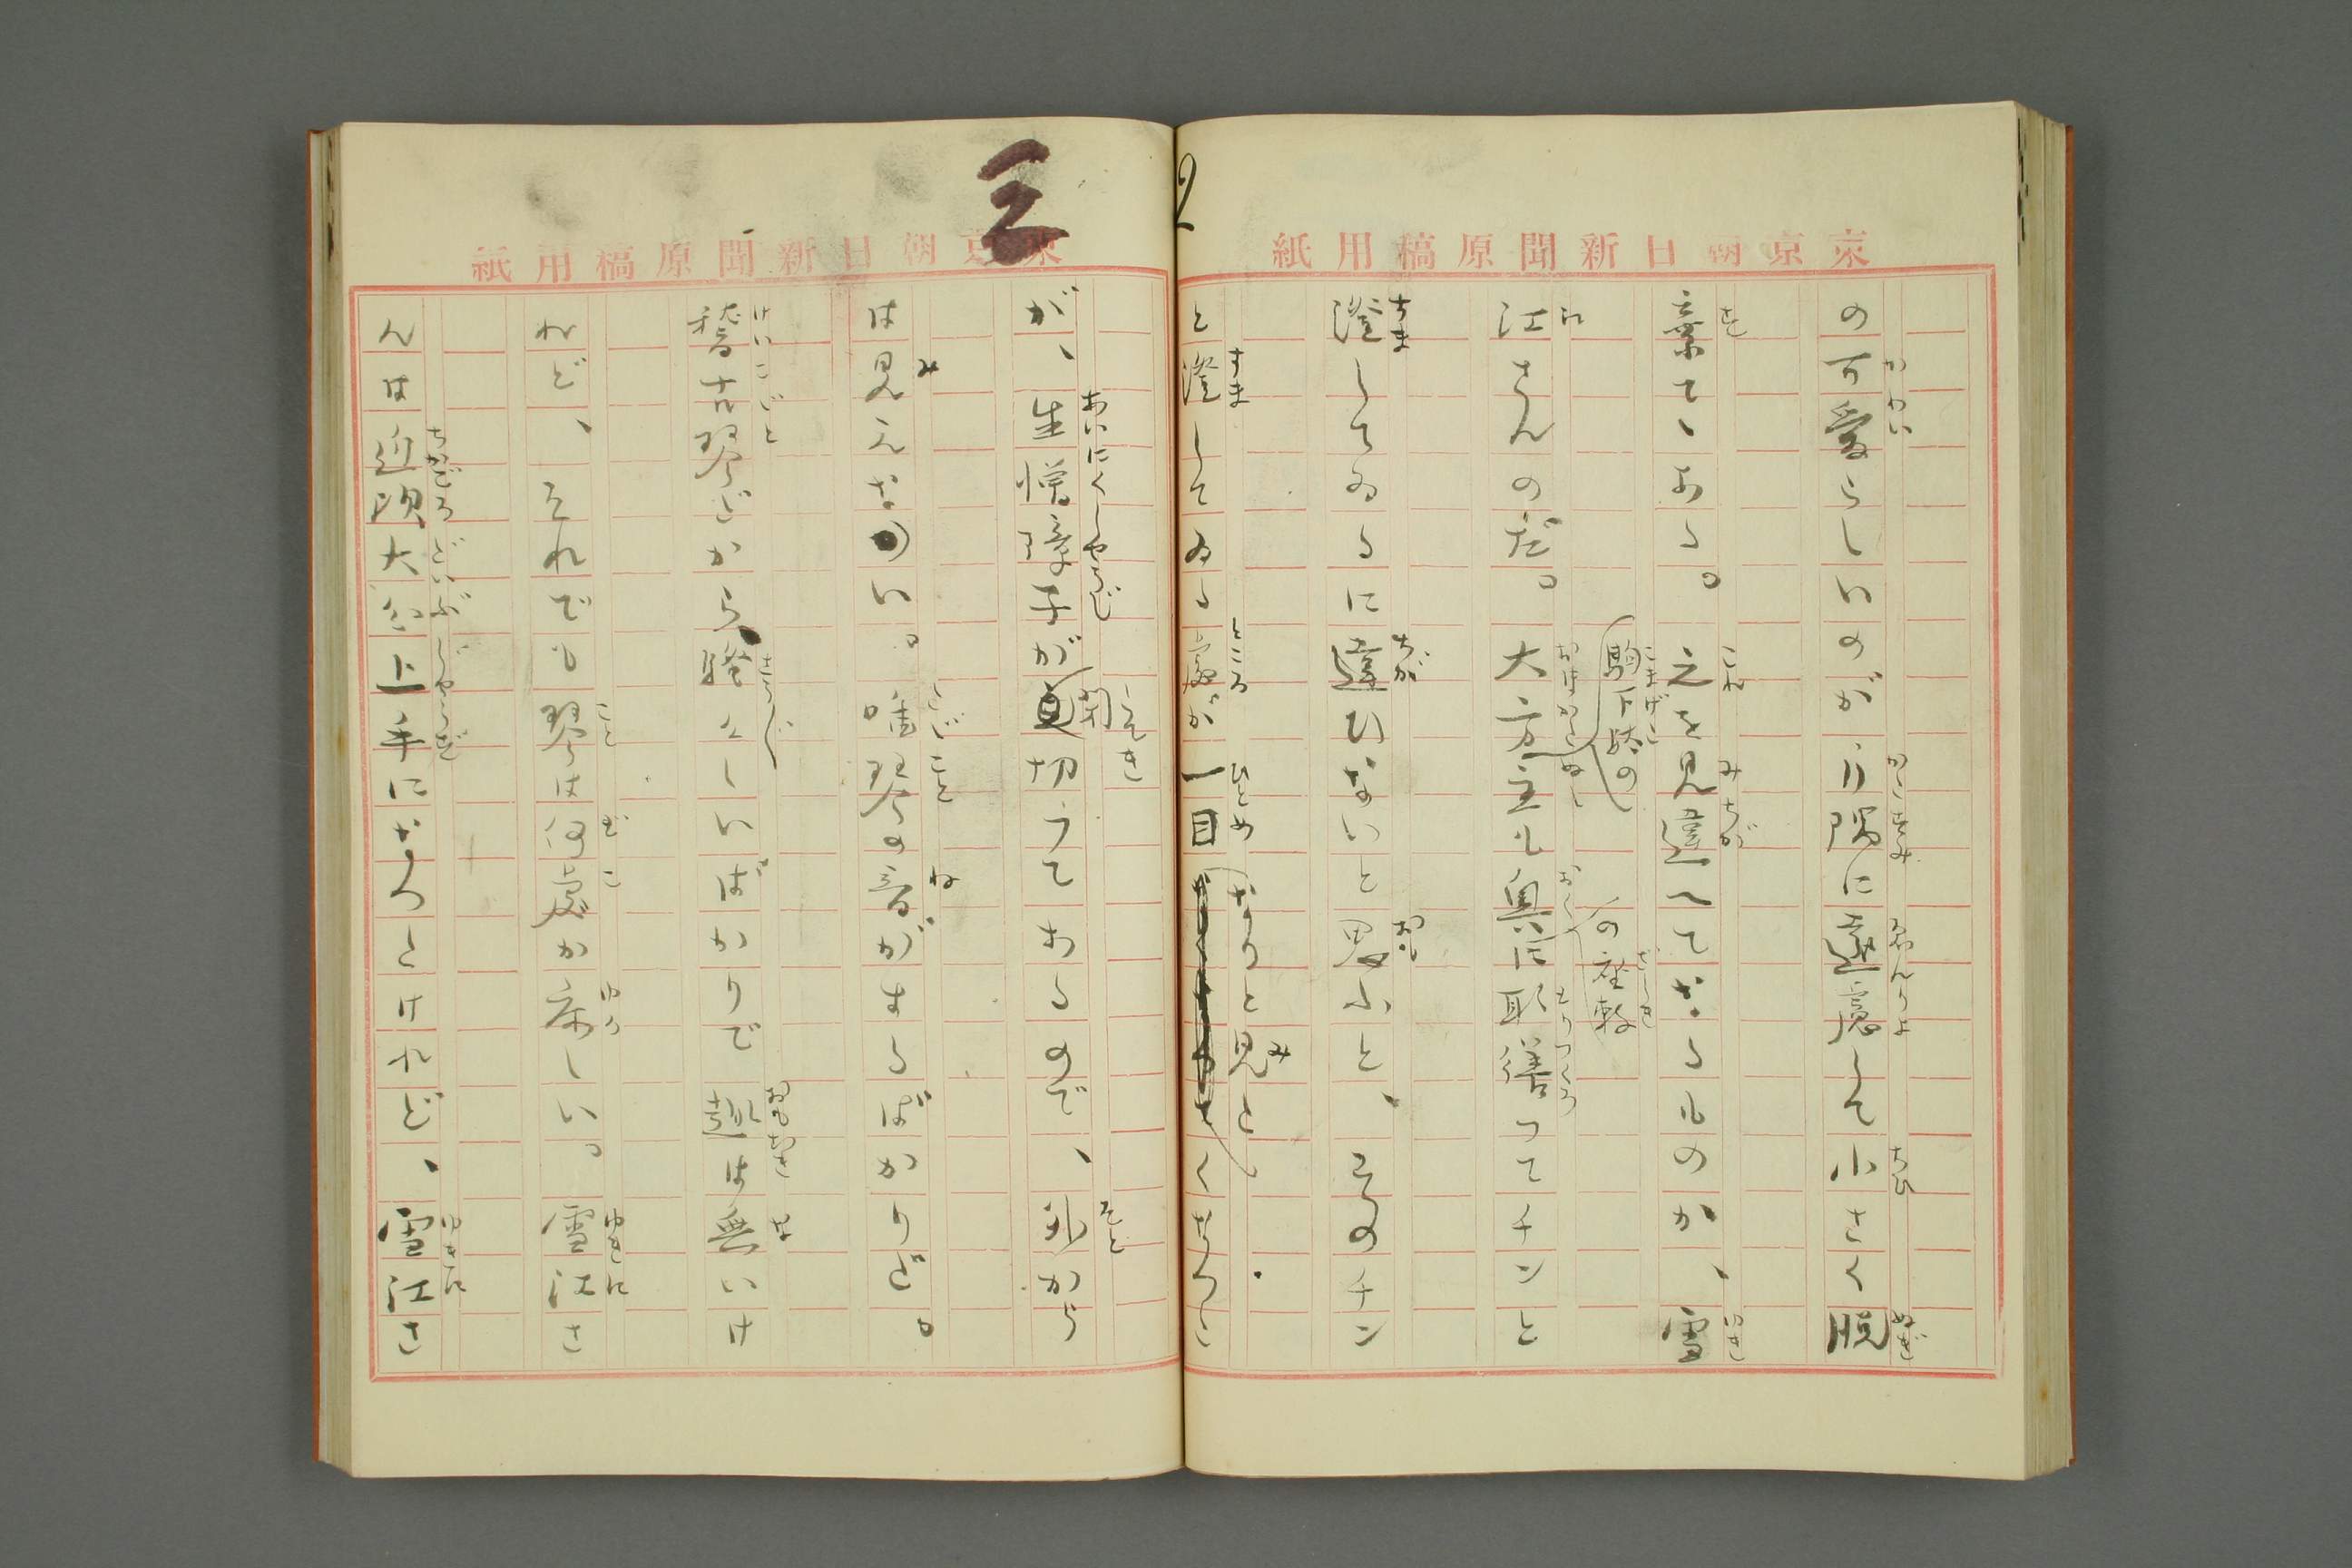 東京朝日新聞原稿用紙
の可愛らしいのが、片隅に遠慮して小さく脱
棄てゝある。之を見違へてなるものか、雪
駒下駄の
江さんのだ。大方主も奥に取繕つてチンと
の座敷
澄してゐるに違ひないと思ふと、そのチン
と澄してゐる處が一目
なりと見と
くなつて
2
三
東京朝日新聞原稿用紙
が、生憎障子が閉切つてあるので、外から
は見えない。唯琴の音がするばかりだ。
稽古琴だから騒々しいばかりで趣は無いけ
れど、それでも琴は何處か床しい。雪江さ
んは近頃大分上手になつたけれど、雪江さ